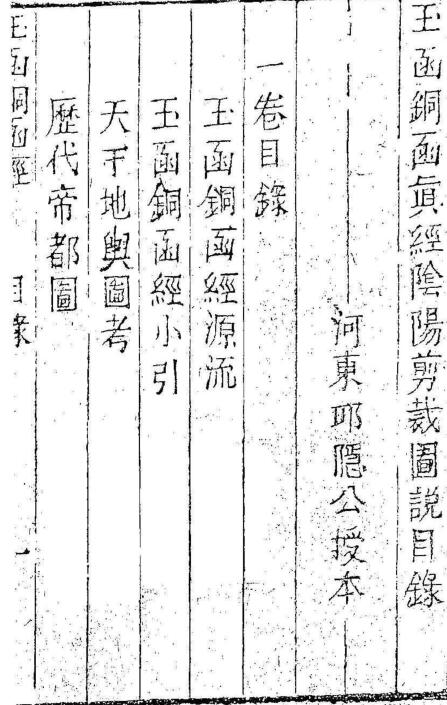 玉函銅函眞經陰陽剪裁圖説目錄
河東耶隱公授本
一卷目錄
玉函銅函經源流
玉函銅函經小引
天下地輿圖考
歷代帝都圖
玉函銅函經 目錄 一